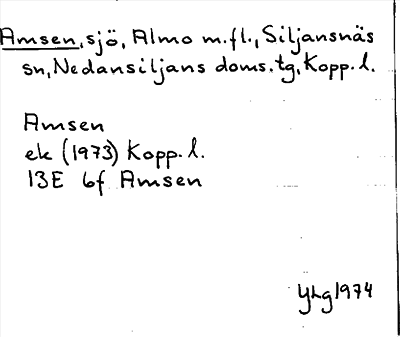 Amsen, sjö, Almo m.fl., Siljansnäs
sn, Nedansiljans doms.tg, Kopp. l.
Amsen
ek (1973) Kopp. l.
13E 6f Amsen
YHg 1974